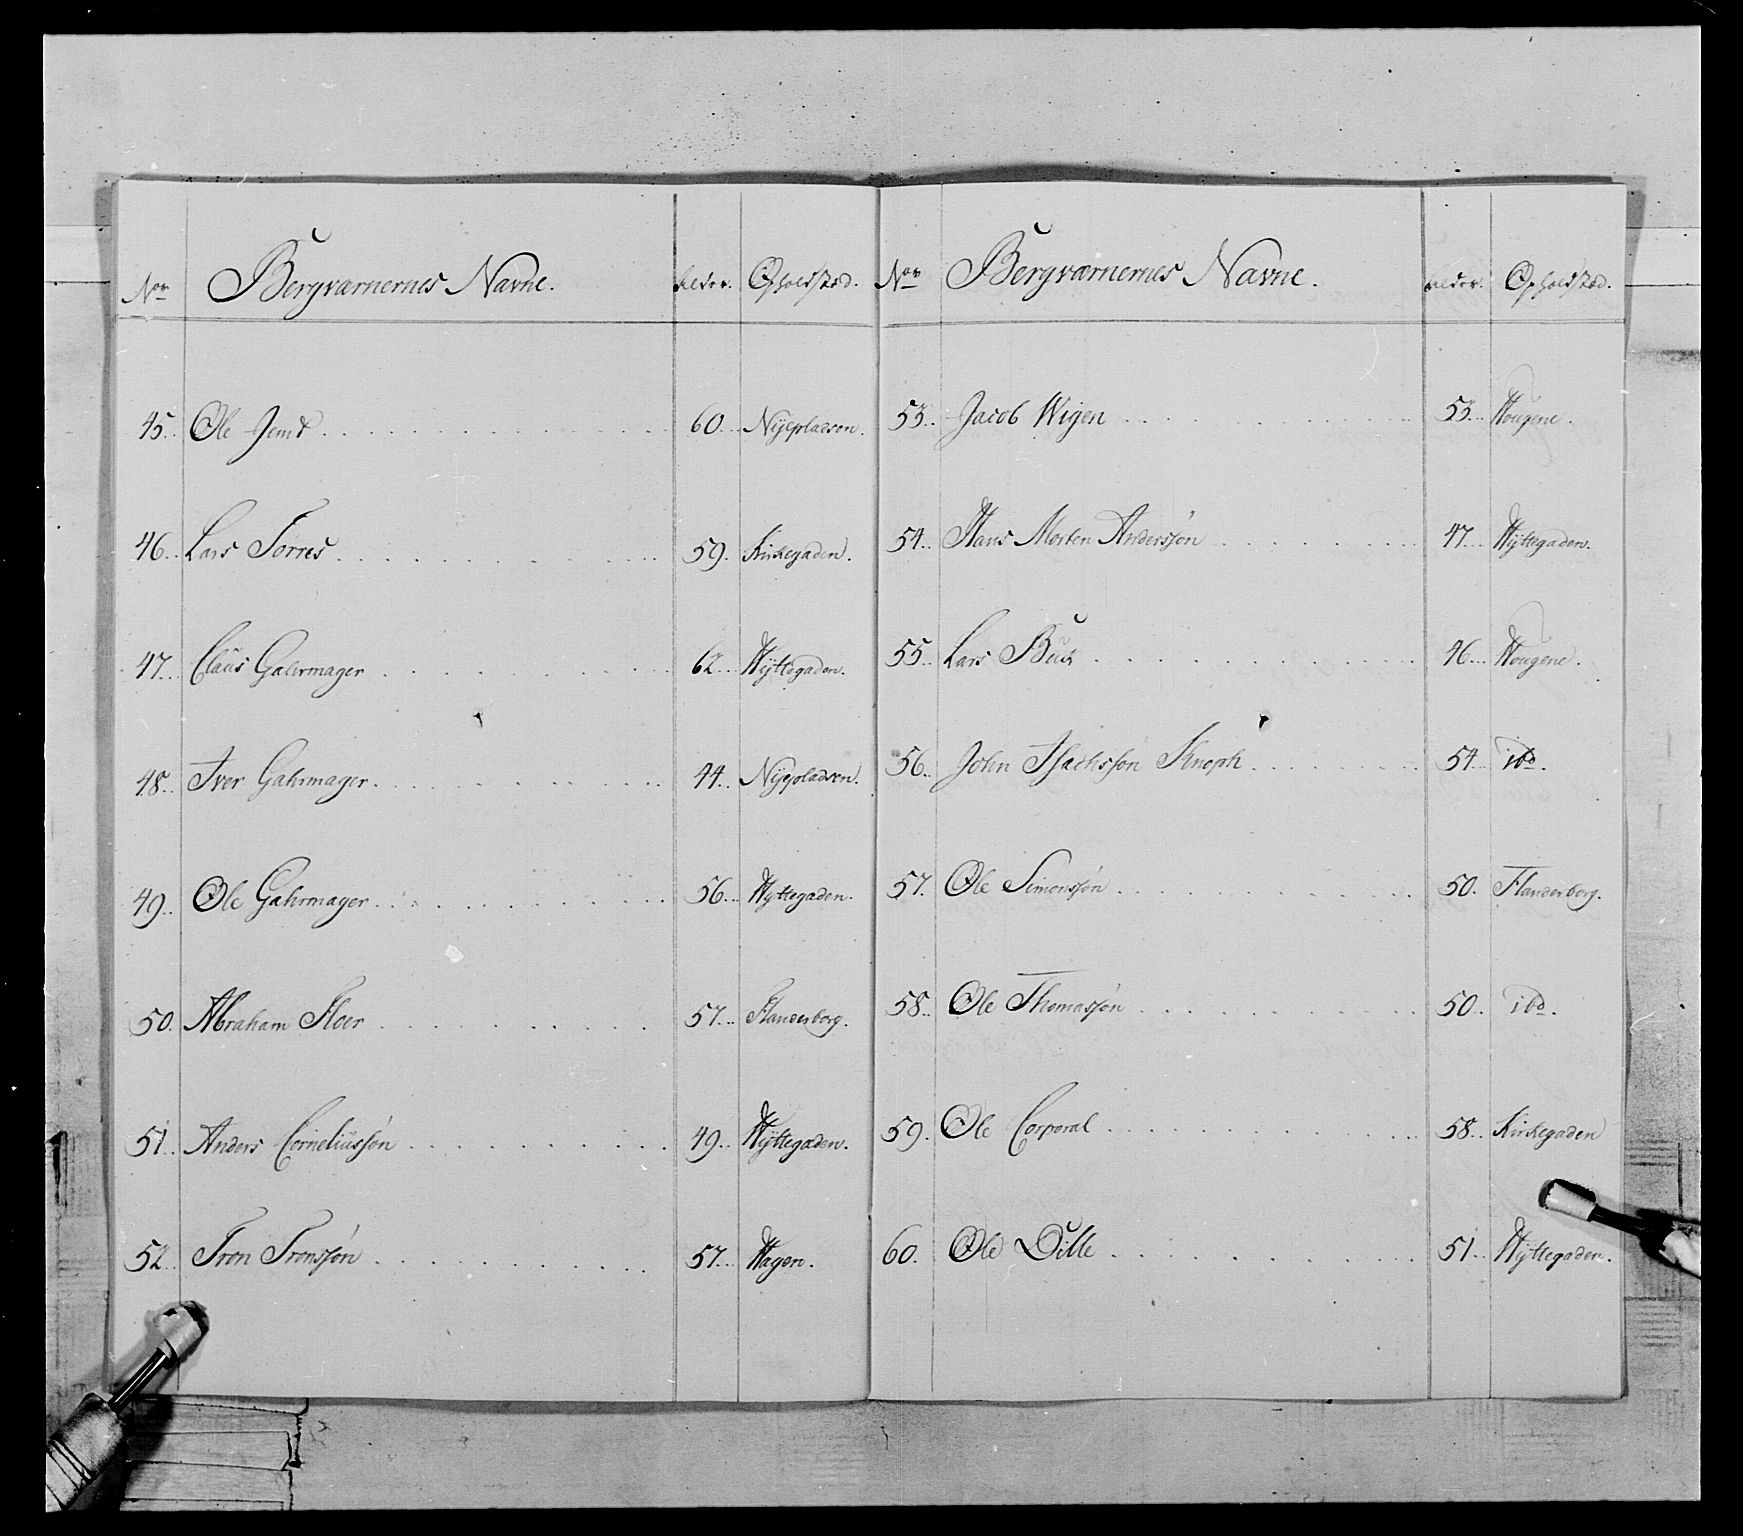 Nor Bergværnernes Navne. Alder. Opholdstæd.
45. Ole Jemt 60. Nyepladsen.
46. Lars Torres 59. Kirkegaden.
47. Claus Gahrmager 62. Hyttegaden.
48. Iver Gahrmager 44. Nyepladsen.
49. Ole Gahrmager 56. Hyttegaden.
50. Abraham Floer 57. Flanderborg.
51. Anders Corneliussøn 49. Hyttegaden.
52. Tron Tronssøn 57. Hagen.
Nor Bergværnernes Navne. Alder. Opholdstæd.
53. Jacob Wigen 53. Hougene.
54. Hans Morten Anderssøn 47. Hyttegaden.
55. Lars Buk 46. Hougene.
56. John Isachssøn Knoph 54. ibd.
57. Ole Simonssøn 50. Flanderborg.
58. Ole Thomassøn 50. ibd.
59. Ole Corporal 58. Kirkegaden
60. Ole Dille 51. Hyttegaden.